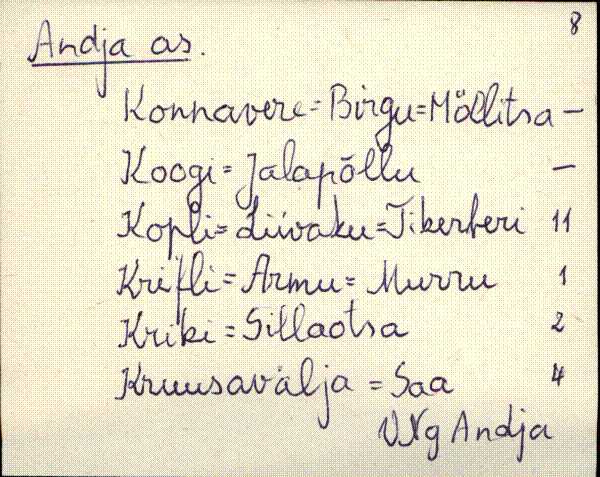 8
Andja as.
Konnavere = Birgu = Möllitsa –
Koogi = Jalapõllu –
Kopli = Liivaku = Tikerberi 11
Krifli = Armu = Murru 1
Kriki = Sillaotsa 2
Kruusavälja = Saa 4
VNg Andja